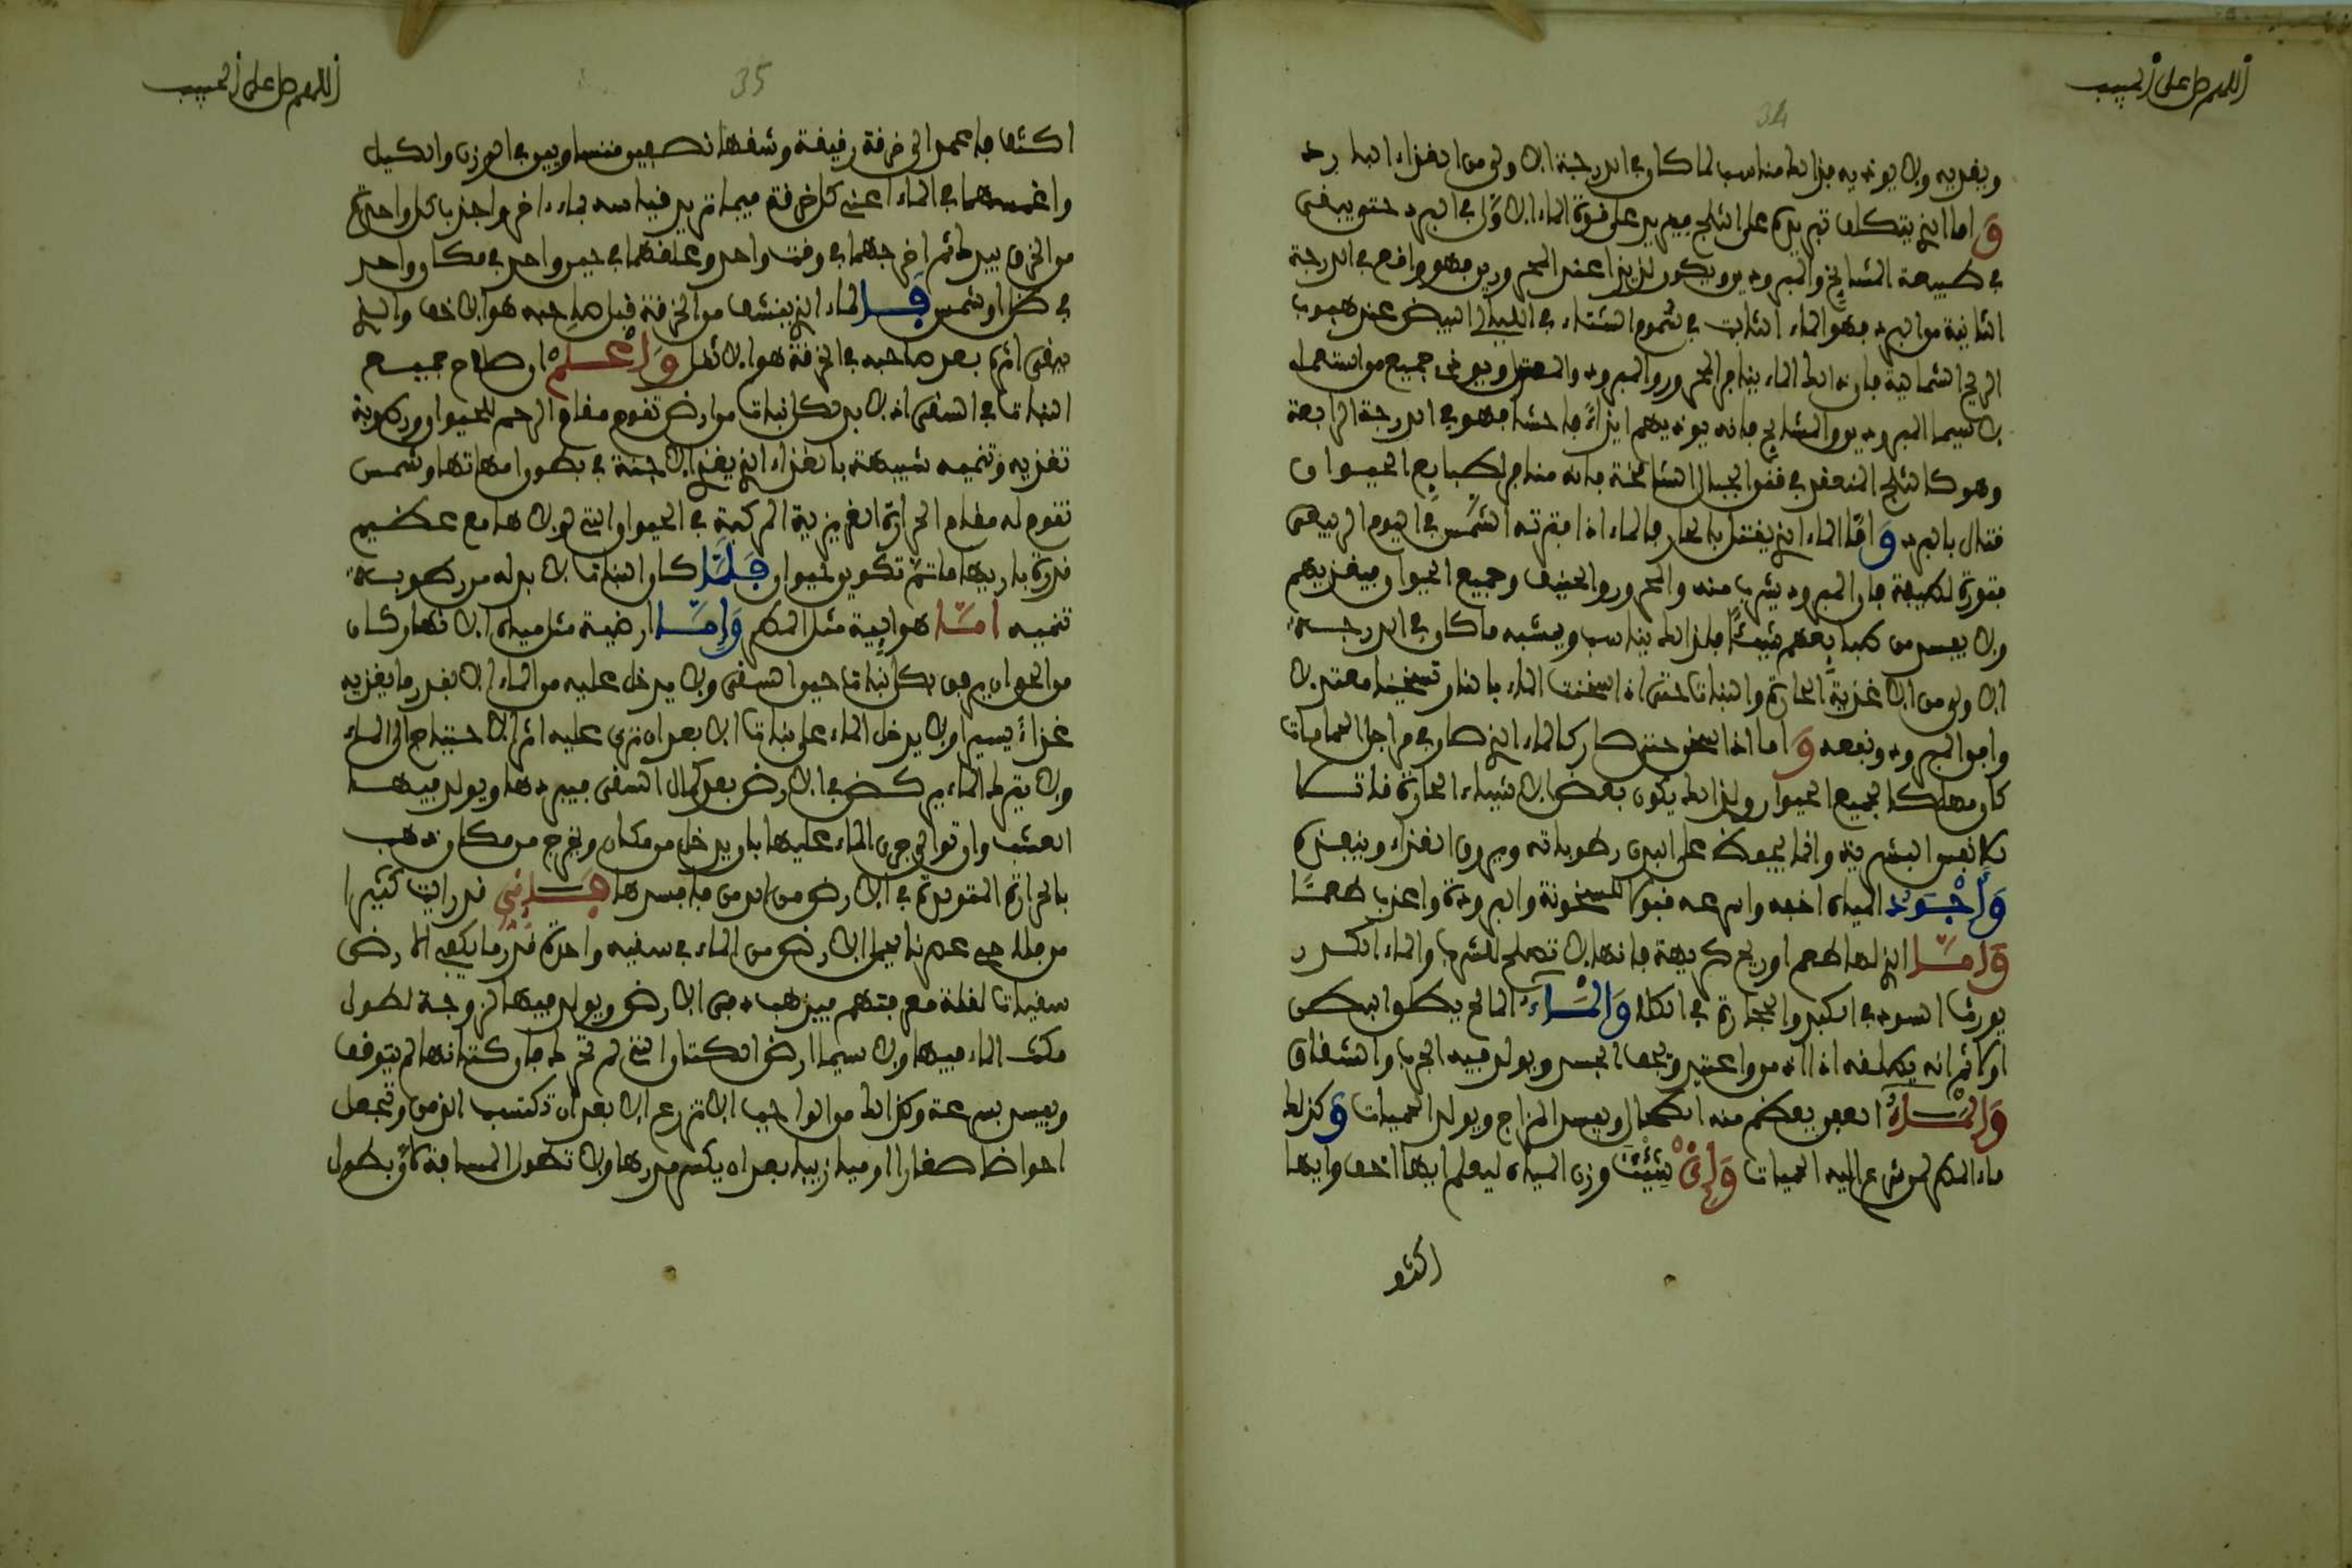 اللهم صل على الحبيب
34
ويغذيه ولا يوذيه فذالك مناسب لما كان في الدرجة الاولى من الغذاء البارد
واما الذي يتكلف تبريده على الثلج فيزيد على قوة الماء الاول في البرد حتى يبقى
في طبيعة المشايخ والمبرودين ويكون لذيذا عند المحرورين فهو واقع في الدرجة
الثانية من البرد فهو الماء الثابت في سموم الشتاء في الليالي البيض عند هبوب
الريح الشمالية فان ذالك الماء ينافر المحرور والمبرود والمعتدل ويوذي جميع من استعمله
لا سيما المبرودين والمشايخ فانه يوذيهم ايذاءً فاحشا فهو في الدرجة الرابعة
وهو كالثلج المنعقد في قنن الجبال الشامخة فانه منافر لطبايع الحيوان
قتال بالبرد واما الماء الذي يقتل بالحار فالماء اذا فترته الشمس في اليوم الربيعي
فتورة لطيفة فان المبرود يشرب منه والمحرور والحنيف وجميع الحيوان فيغذيهم
ولا يفسد من طبايعهم شيئًا فلذالك يناسب ويشبه ما كان في الدرجة
الاولى من الاغذية الحارة والنبات حتى اذا سخنت الماء بالنار تسخينا معتدلا
وافق المبرود ونفعه واما اذا سخن حتى صار كالماء الذي صار في مراجل الحمامات
كان مهلكا لجميع الحيوان ولذالك يكون بعض الاشياء الحارة قاتلا
بالنفس البشرية وانما يحفظ على البدن رطوباته ويروق الغذاء وينفذه
وأجود المياه اخفه واسرعه قبولا للسخونة والبرودة واعذب طعمًا
وامّا الذي لها طعم او ريح كريهة فانها لا تصلح للشرب والماء الكدر
يورث السدد في الكبد والحجارة في الكلا والماء المالح يطلق البطن
اول شربه يطلقه اذا ادمن واعتيد ويجفف الجسد ويولد فيه الجرب والشقاق
والماء العفن يعظم منه الطحال ويفسد المزاج ويولد الحميات وكذلك
ماء المطر اسرع اليه الحميات وإن شئت وزن المياه ليعلم ايها اخف وايها
اكثف
اللهم صل على الحبيب
35
اكثف فاعمد الى خرقة رفيقة وشقها نصفين متساويين في الوزن والكيل
واغمسهما في الماء اعني كل خرقة فيما تريد قياسه بماء اخر واجذب كل واحدة
من الخرق بيدك ثم اخرجهما في وقت واحد وعلقهما في حين واحد في مكان واحد
في ظل او شمس فالماء الذي ينشف من الخرقة قبل صاحبه هو الاخف والذي
يبقى اثره بعد صاحبه في الخرقة هو الاثقل واعلم ان صلاح جميع
النبات في السقى اذ لا بد لكل نبات من ارض تقوم مقام الرحم للحيوان ورطوبة
تغذيه وتنميه شبيهة بالغذاء الذي يغذي الاجنة في بطون امهاتها وشمس
تقوم له مقام الحرارة الغريزية المركبة في الحيوان التي لولاها مع عظيم
قدرة باريها ما تم تكوين حيوان فلمّا كان النبات لا بد له من رطوبة
تنميه امّا هوايية مثل المطر وإمّا ارضية مثل مياه الانهار كان
من الحق ان يرفق بكل نبات حين السقى ولا يدخل عليه من الماء الا بقدر ما يغذيه
غذاءً يسيرا ولا يدخل الماء على نبات الا بعد ان ترى عليه اثر الاحتياج الى الماء
ولا يترك الماء يركض في الارض بعد كمال السقى فيبردها ويولد فيها
العشب وان توالى جري الماء عليها بان يدخل من مكان ويخرج من مكان ذهب
بالحرارة المتولدة في الارض من الدمن فافسدها فإني قد رايت كثيرا
من فلاحي عصرنا يحمل الارض من الماء في سقيه واحدة قدر ما يكفي الارض
سقيات لقلة معرفتهم فيذهب دفى الارض ويولد فيها الزوجة لطول
مكث الماء فيها ولا سيما ارض الكتان التي لم تحرك فان كتانها لم يتوقف
ويفسد بسرعة وكذالك من الواجب الا تزرع الا بعد ان تكتسب الزمن وتجعل
احواضا صغارا او ميازيبا بعد ان يكسر مدرها ولا تطول المسافة لان بطول